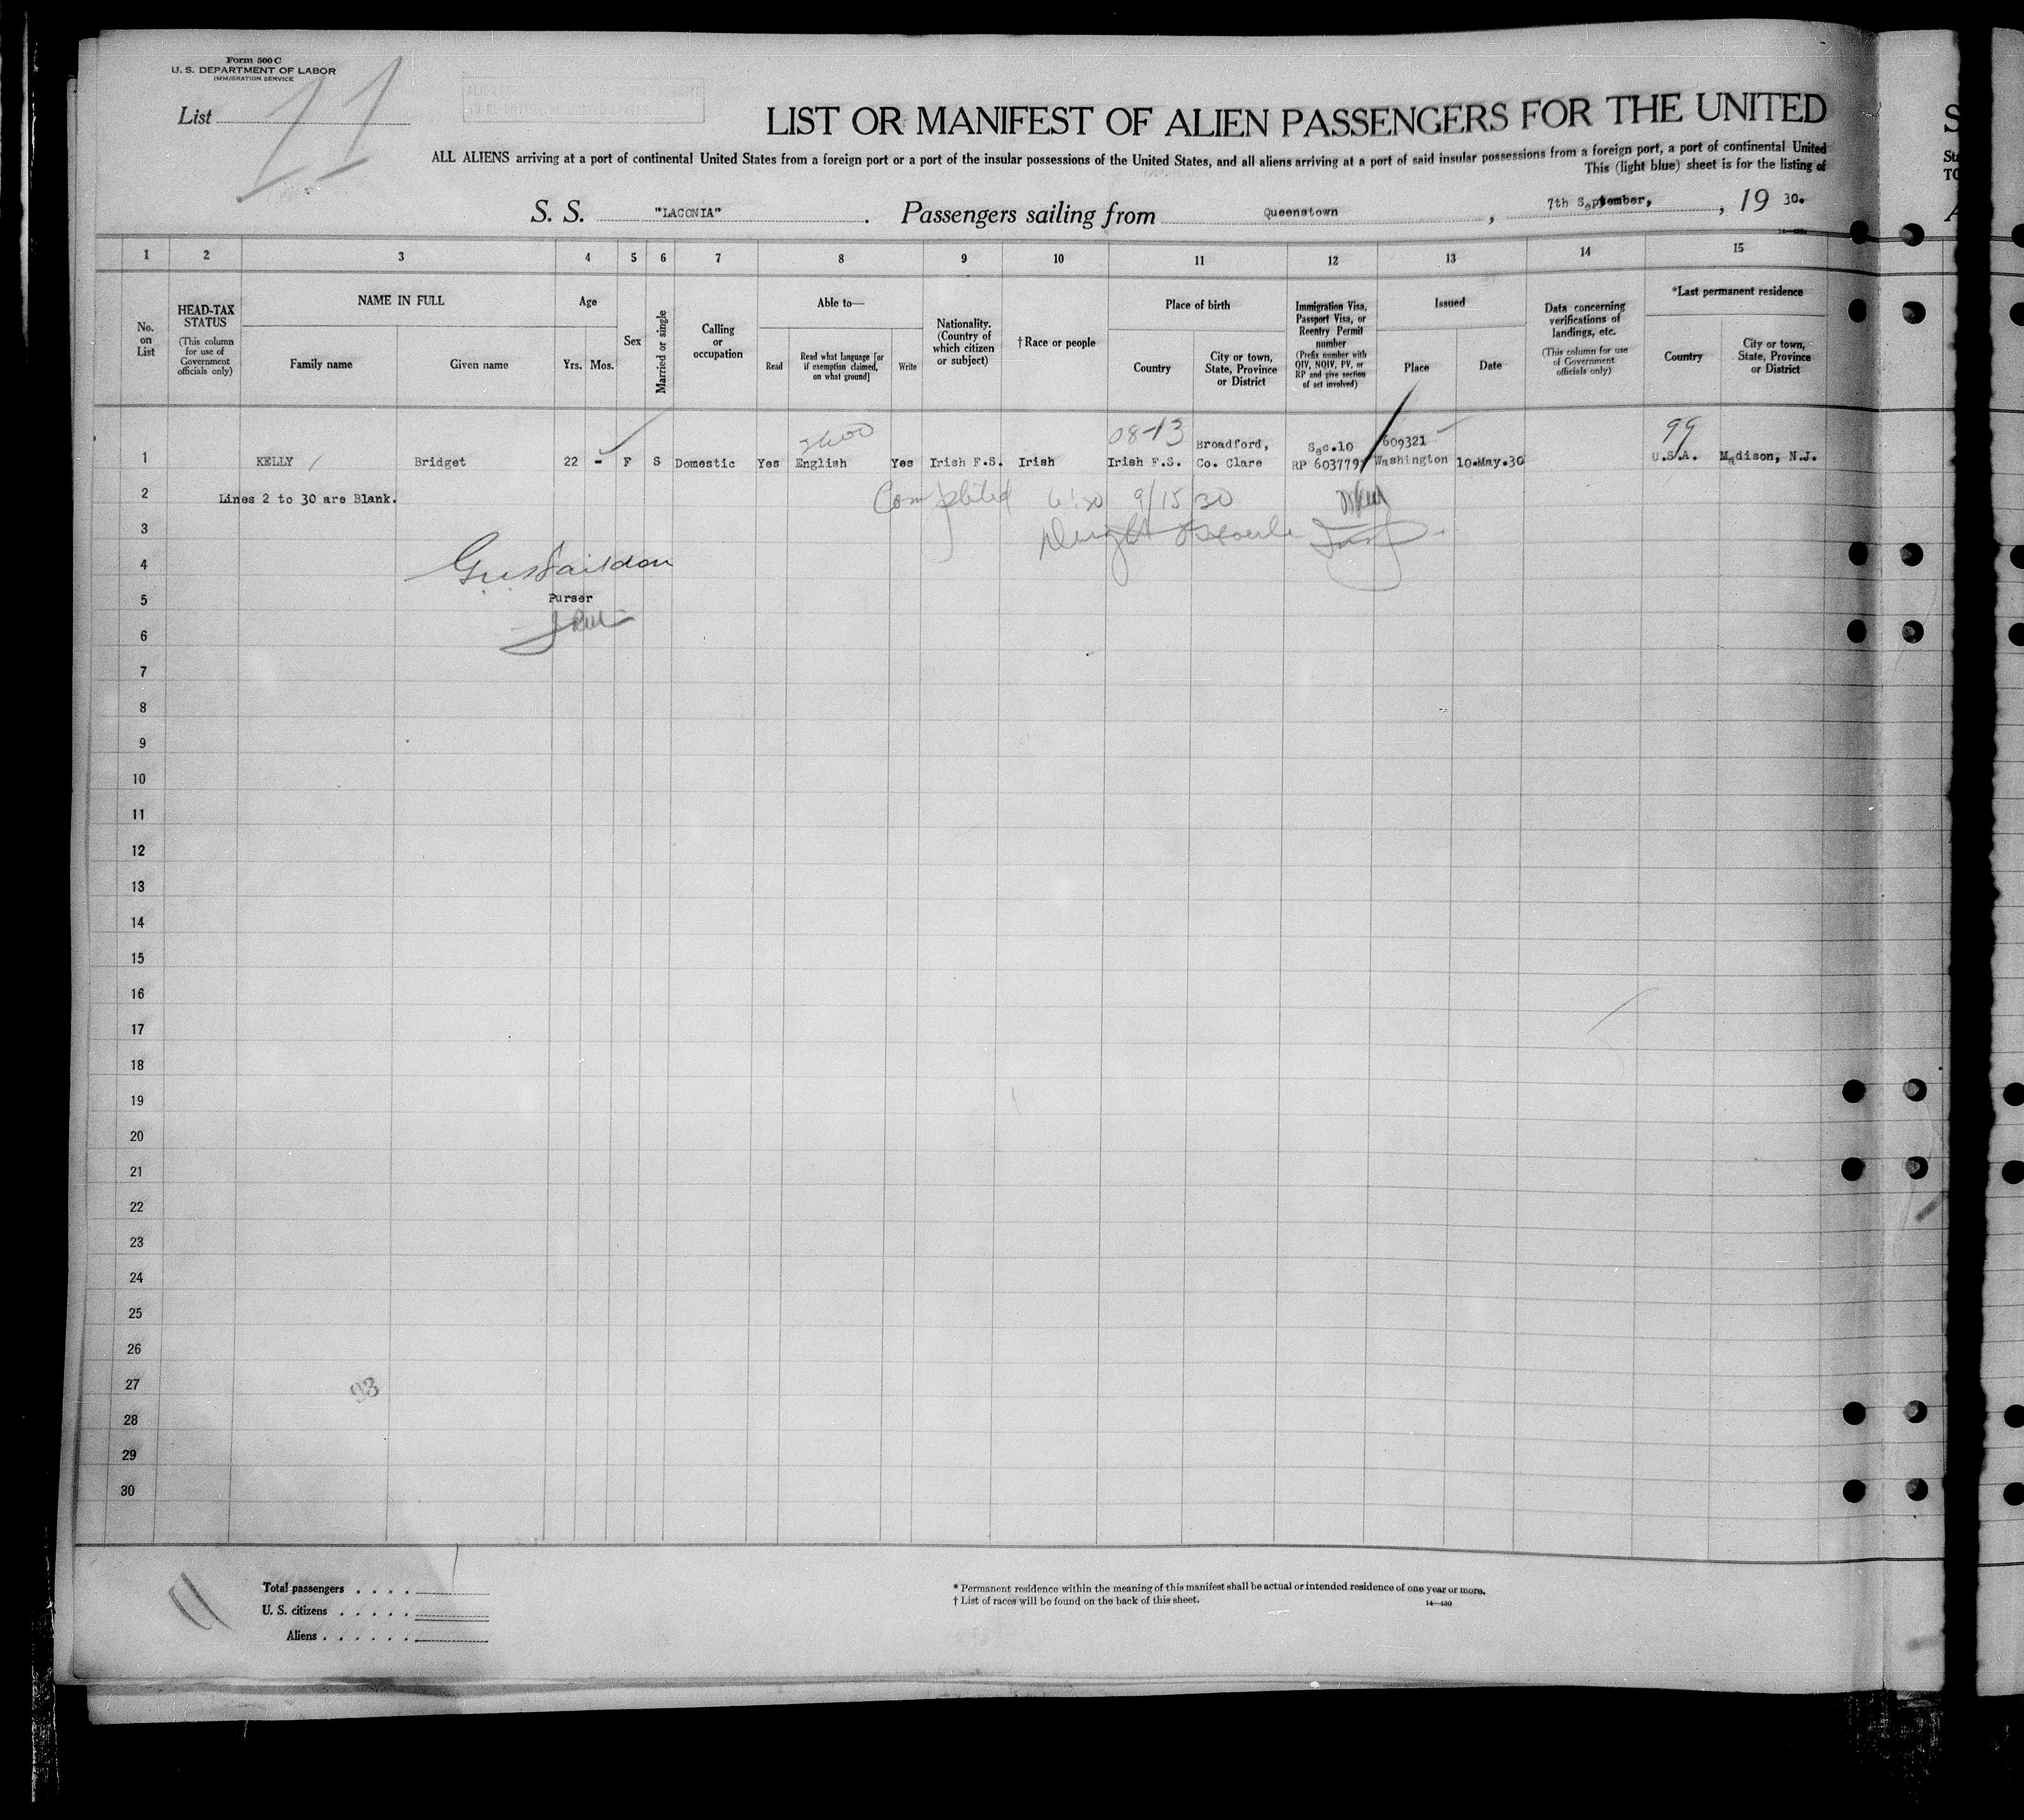 Form 500 C
U. S. DEPARTMENT OF LABOR
IMMIGRATION SERVICE
List 11
LIST OR MANIFEST OF ALIEN PASSENGERS FOR THE UNITED
ALL ALIENS arriving at a port of continental United States from a foreign port or a port of the insular possessions of the United States, and all aliens arriving at a port of said insular possessions from a foreign port, a port of continental United
This (light blue) sheet is for the listing of
S. S. "LACONIA". Passengers sailing from Queenstown, 7th September, , 19 30.
1 2 3 4 5 6 7 8 9 10 11 12 13 14 15
No. on List
HEAD-TAX STATUS
(This column for use of Government officials only)
NAME IN FULL
Family name Given name
Age
Yrs. Mos.
Sex
Married or single
Calling or occupation
Able to—
Read
Read what language [or if exemption claimed, on what ground]
Write
Nationality. (Country of which citizen or subject)
†Race or people
Place of birth
Country
City or town, State, Province or District
Immigration Visa, Passport Visa, or Reentry Permit number
(Prefix number with QIV, NQIV, PV, or RP and give section of act involved)
Issued
Place Date
Data concerning verifications of landings, etc.
(This column for use of Government officials only)
*Last permanent residence
Country
City or town, State, Province or District
08-13 Broadford, Sec.10 609321 99
1 KELLY Bridget 22 - F S Domestic Yes English Yes Irish F.S. Irish Irish F.S. Co. Clare RP 603779 Washington 10.May.30 U.S.A. Madison, N.J.
2 Lines 2 to 30 are Blank. Completed 9/15/30
3
4
5 Purser
6
7
8
9
10
11
12
13
14
15
16
17
18
19
20
21
22
23
24
25
26
27
93
28
29
30
11
Total passengers . . . .
U. S. citizens . . . . .
Aliens . . . . . .
* Permanent residence within the meaning of this manifest shall be actual or intended residence of one year or more.
† List of races will be found on the back of this sheet.
14—430